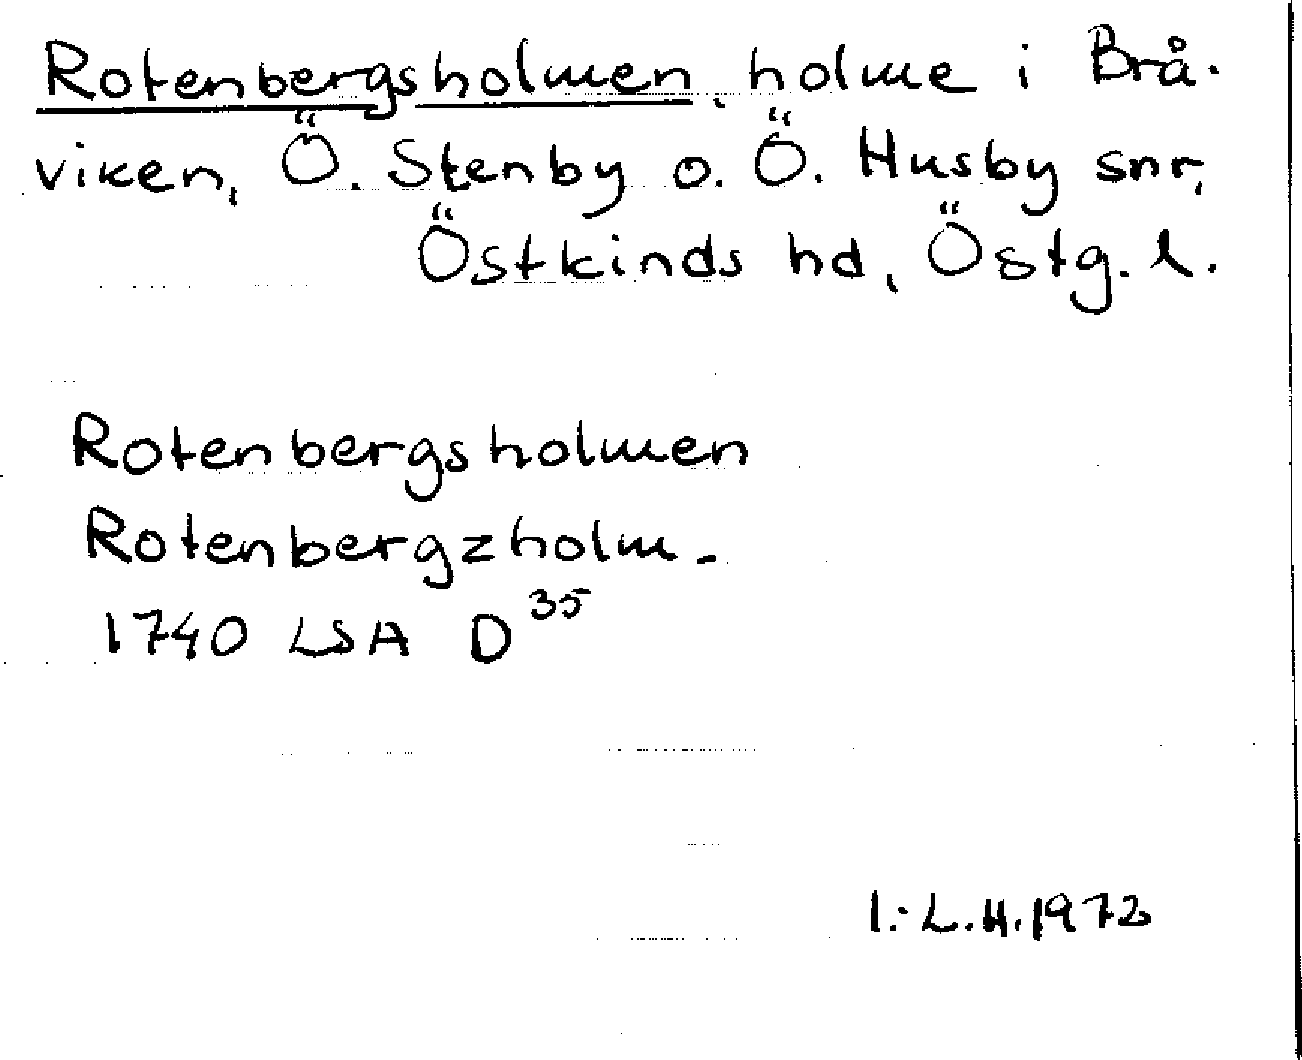 Rotenbergsholmen, holme i Brå-
viken, Ö. Stenby o. Ö. Husby snr,
Östkinds hd, Östg. l.
Rotenbergsholmen
Rotenbergzholm -
1740 LSA D 35
I.-L.H. 1973